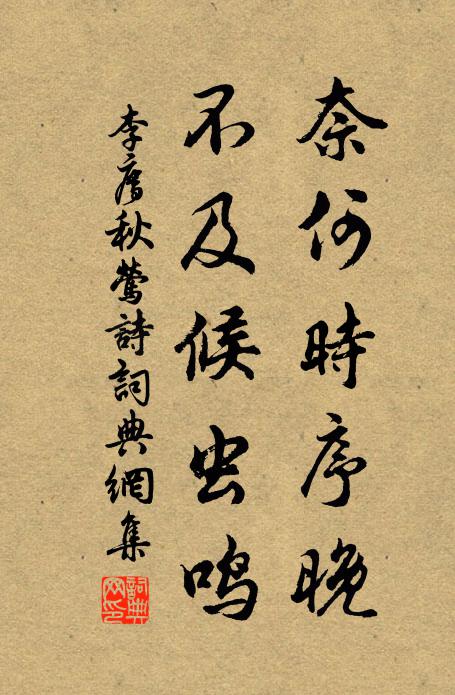 奈何時序晚
不及候虫鳴
李秋鶯詩詞典網集
詞典
网印